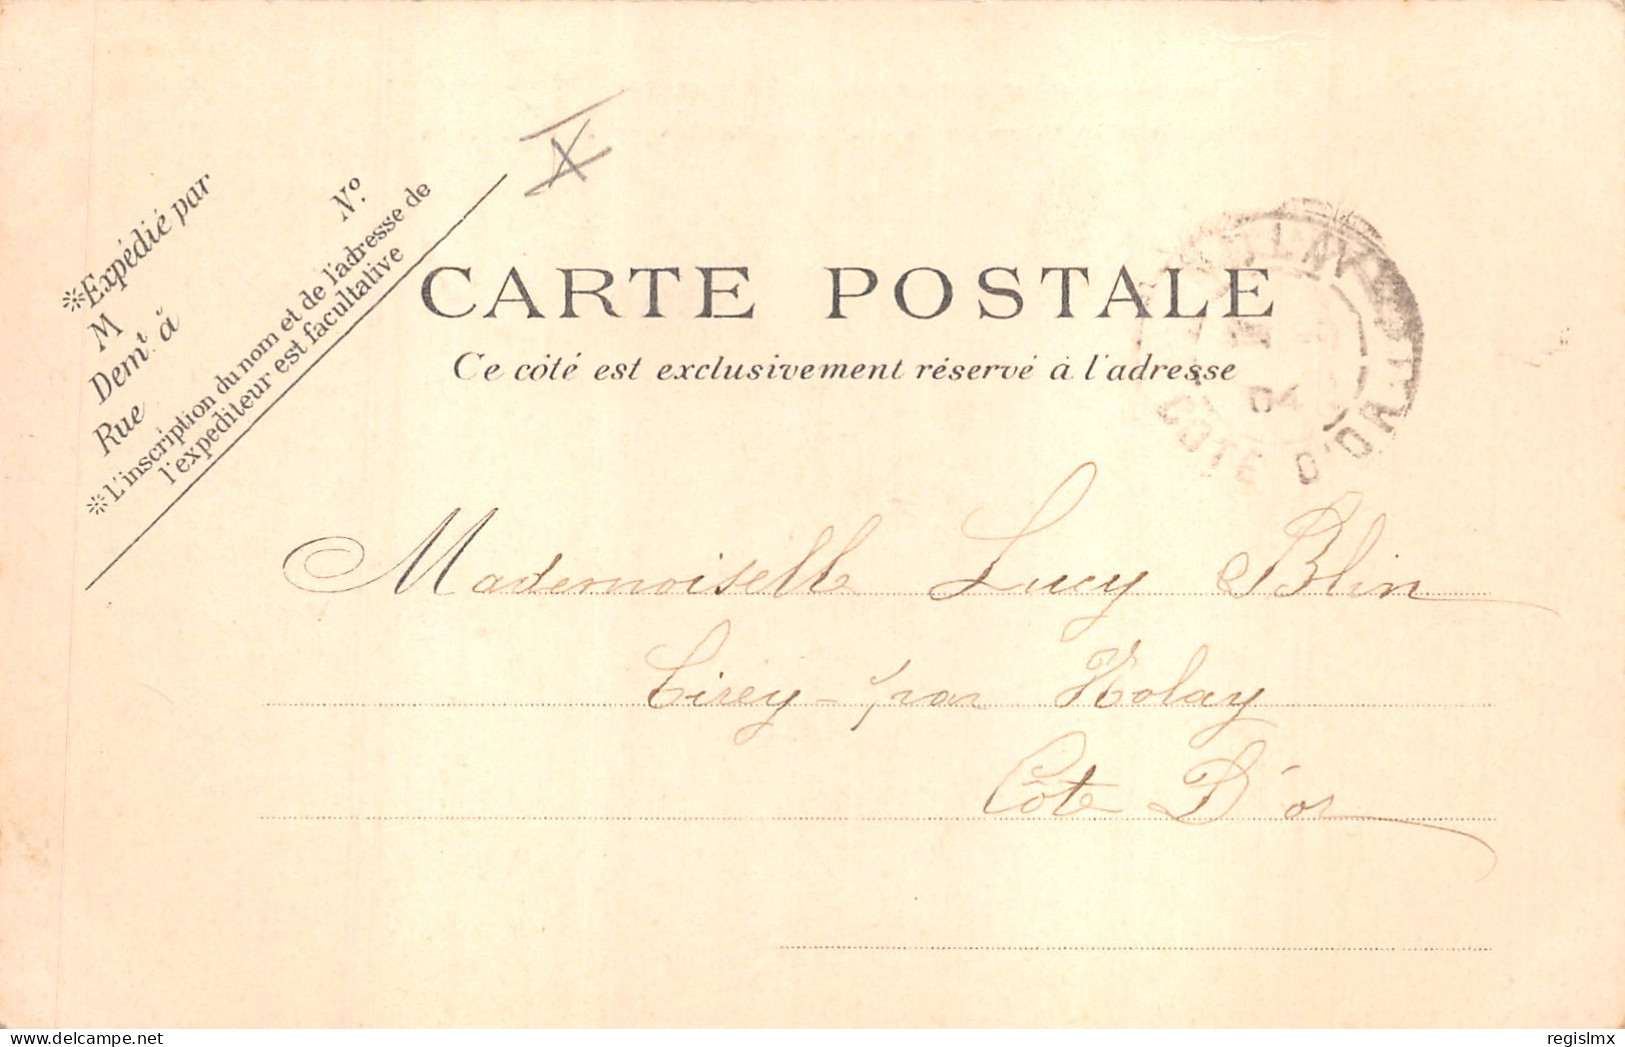 ※Expédié par
M
Demt à
Rue
No.
※L'inscription du nom et de l'adresse de
l'expéditeur est facultative
CARTE POSTALE
Ce côté est exclusivement réservé à l'adresse
04
COTE D'OR
Mademoiselle Lucy Blin
Cirey-par Nolay
Côte D'or
regislmx